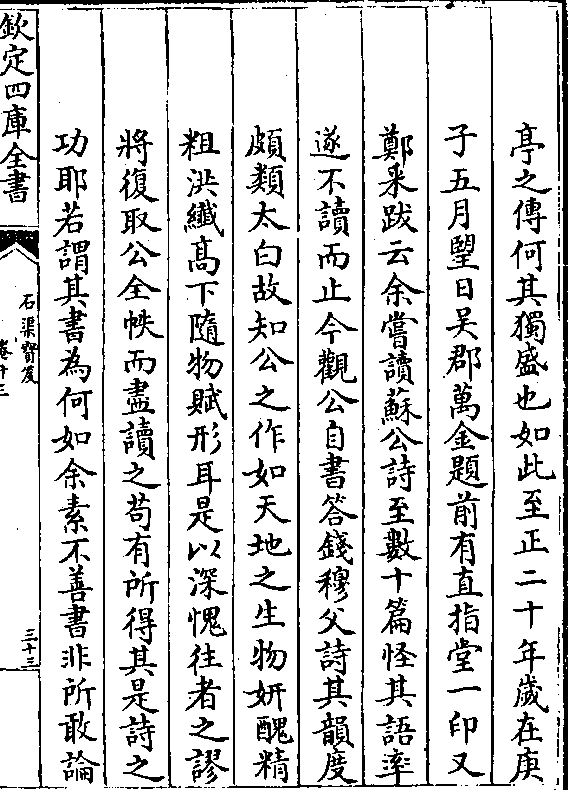 亭之傳何其獨盛也如此至正二十年歲在庚
子五月朢日吴郡萬金題前有直指堂一印又
鄭釆跋云余嘗讀蘇公詩至數十篇怪其語率
遂不讀而止今觀公自書答錢穆父詩其韻度
頗類太白故知公之作如天地之生物妍醜精
粗洪纎髙下隨物賦形耳是以深愧往者之謬
將復取公全帙而盡讀之茍有所得其是詩之
功耶若謂其書為何如余素不善書非所敢論
欽定四庫全書
石渠寳笈
卷十三
三十三